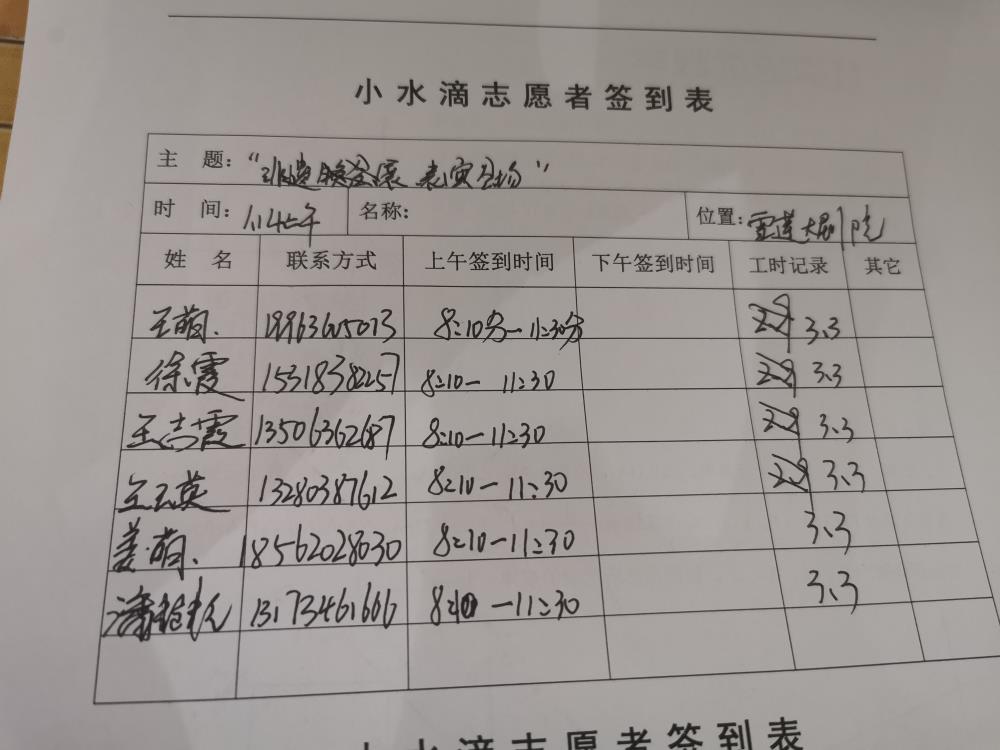 小水滴志愿者签到表
主 题：“非遗 表演现场”
时 间： 名称： 位置：大剧院
姓 名 联系方式 上午签到时间 下午签到时间 工时记录 其它
王萌. 8:10分-11:30分 3.3
徐霞 15318382257 8:10- 11:30 3.3
王志霞 13506362687 8:10-11:30 3.3
王玉英 13280387612 8:10-11:30 3.3
姜萌. 18562028030 8:10-11:30 3.3
13173461606 8:10 -11:30 3.3
小水滴志愿者签到表